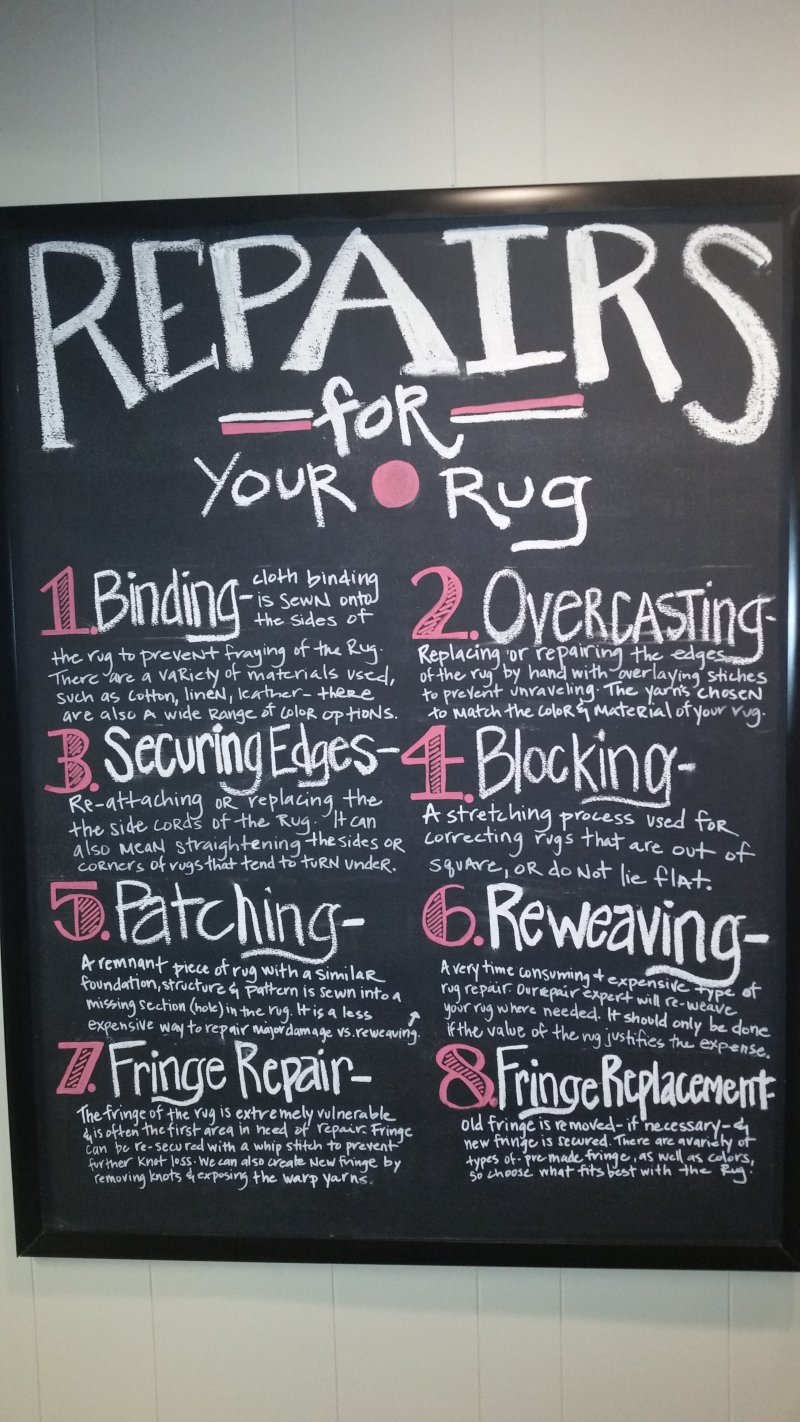 REPAIRS
for
Your Rug
1. Binding- cloth binding
is sewn onto
the sides of
the rug to prevent fraying of the Rug.
There are a variety of materials used,
such as cotton, linen, leather- there
are also a wide range of color options.
2. Overcasting-
Replacing or repairing the edges
of the rug by hand with overlaying stiches
to prevent unraveling. The yarn's chosen
to match the color & material of your rug.
3. Securing Edges-
Re-attaching or replacing the
the side cords of the Rug. It can
also mean straightening the sides or
corners of rugs that tend to turn under.
4. Blocking-
A stretching process used for
correcting rugs that are out of
square, or do not lie flat.
5. Patching-
A remnant piece of rug with a similar
foundation, structure & pattern is sewn into a
missing section (hole) in the rug. It is a less
expensive way to repair major damage vs. reweaving.
6. Reweaving-
A very time consuming + expensive type of
rug repair. Our repair expert will re-weave
your rug where needed. It should only be done
if the value of the rug justifies the expense.
7. Fringe Repair-
The fringe of the rug is extremely vulnerable
& is often the first area in need of repair. Fringe
can be re-secured with a whip stitch to prevent
further knot loss. We can also create new fringe by
removing knots & exposing the warp yarns.
8. Fringe Replacement-
Old fringe is removed- if necessary- &
new fringe is secured. There are a variety of
types of pre made fringe, as well as colors,
so choose what fits best with the Rug.